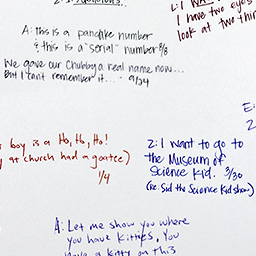 A: this is a pancake number
& this is a "serial" number 8/8
We gave our Chubby a real name now...
But I cant remember it.... 9/24
L: I
I have two eyes
look at two thin
E:
boy is a Ho, Ho, Ho!
y at church had a goatee)
1/4
Z: I want to go to
the Museum of
Science Kid. 3/30
(re: Sid the Science Kid show)
A: Let me show you where
you have kitties. You
have a kitty on this